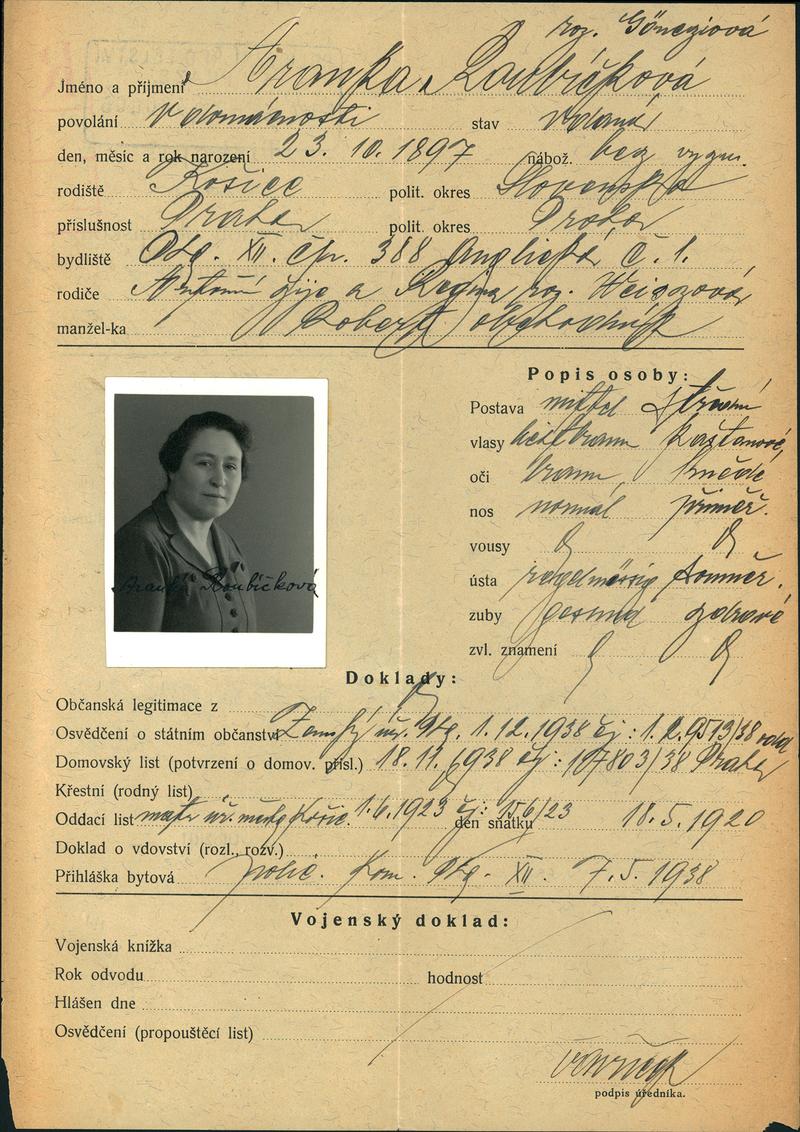 roz. Göncziová
Jméno a příjmení Aranka Roubíčková
povolání v domácnosti stav vdaná
den, měsíc a rok narození 23. 10. 1897 nábož. bez vyzn.
rodiště Košice polit. okres Slovensko
příslušnost Praha polit. okres Praha
bydliště Prg. XII. čp. 388 Anglická č. 1.
rodiče žije a Regina roz. Weiszová
manžel-ka Robert obchodník
Popis osoby:
Postava mittel střední
vlasy kaštanové
oči braun, hnědé
nos normal přiměř.
vousy
ústa regelmässig souměr.
zuby gesund zdravé
zvl. znamení
Aranka Roubíčková
Doklady:
Občanská legitimace z
Osvědčení o státním občanství Zemský úř. Prg. 1.12.1938 čj: 9513/38
Domovský list (potvrzení o domov. přísl.) 18.11.1938 čj: 107803/38 Praha
Křestní (rodný list)
Oddací list matr. úř. Košic. 1.6.1923 čj: 156/23 den sňatku 18.5.1920
Doklad o vdovství (rozl., rozv.)
Přihláška bytová polic. kom. Prg. XII. 7.5.1938
Vojenský doklad:
Vojenská knížka
Rok odvodu hodnost
Hlášen dne
Osvědčení (propouštěcí list)
podpis úředníka.